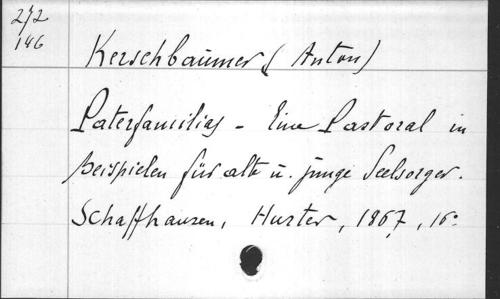 272
146
Kerschbaumer (Anton)
Paterfamilias - Eine Pastoral in
Beispielen für alte u. junge Seelsorger.
Schaffhausen, Hurter, 1867, 16°